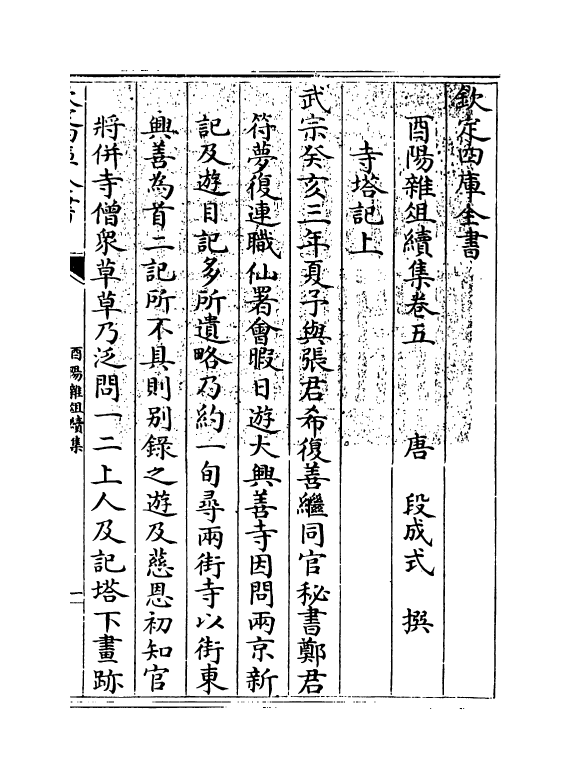 欽定四庫全書
酉陽雜俎續集卷五
唐 段成式 撰
寺塔記上
武宗癸亥三年夏予與張君希復善繼同官秘書鄭君
符夢復連職仙署會暇日遊大興善寺因問兩京新
記及遊目記多所遺略乃約一旬尋兩街寺以街東
興善為首二記所不具則別錄之遊及慈恩初知官
將併寺僧衆草草乃泛問一二上人及記塔下畫跡
酉陽雜俎續集
一